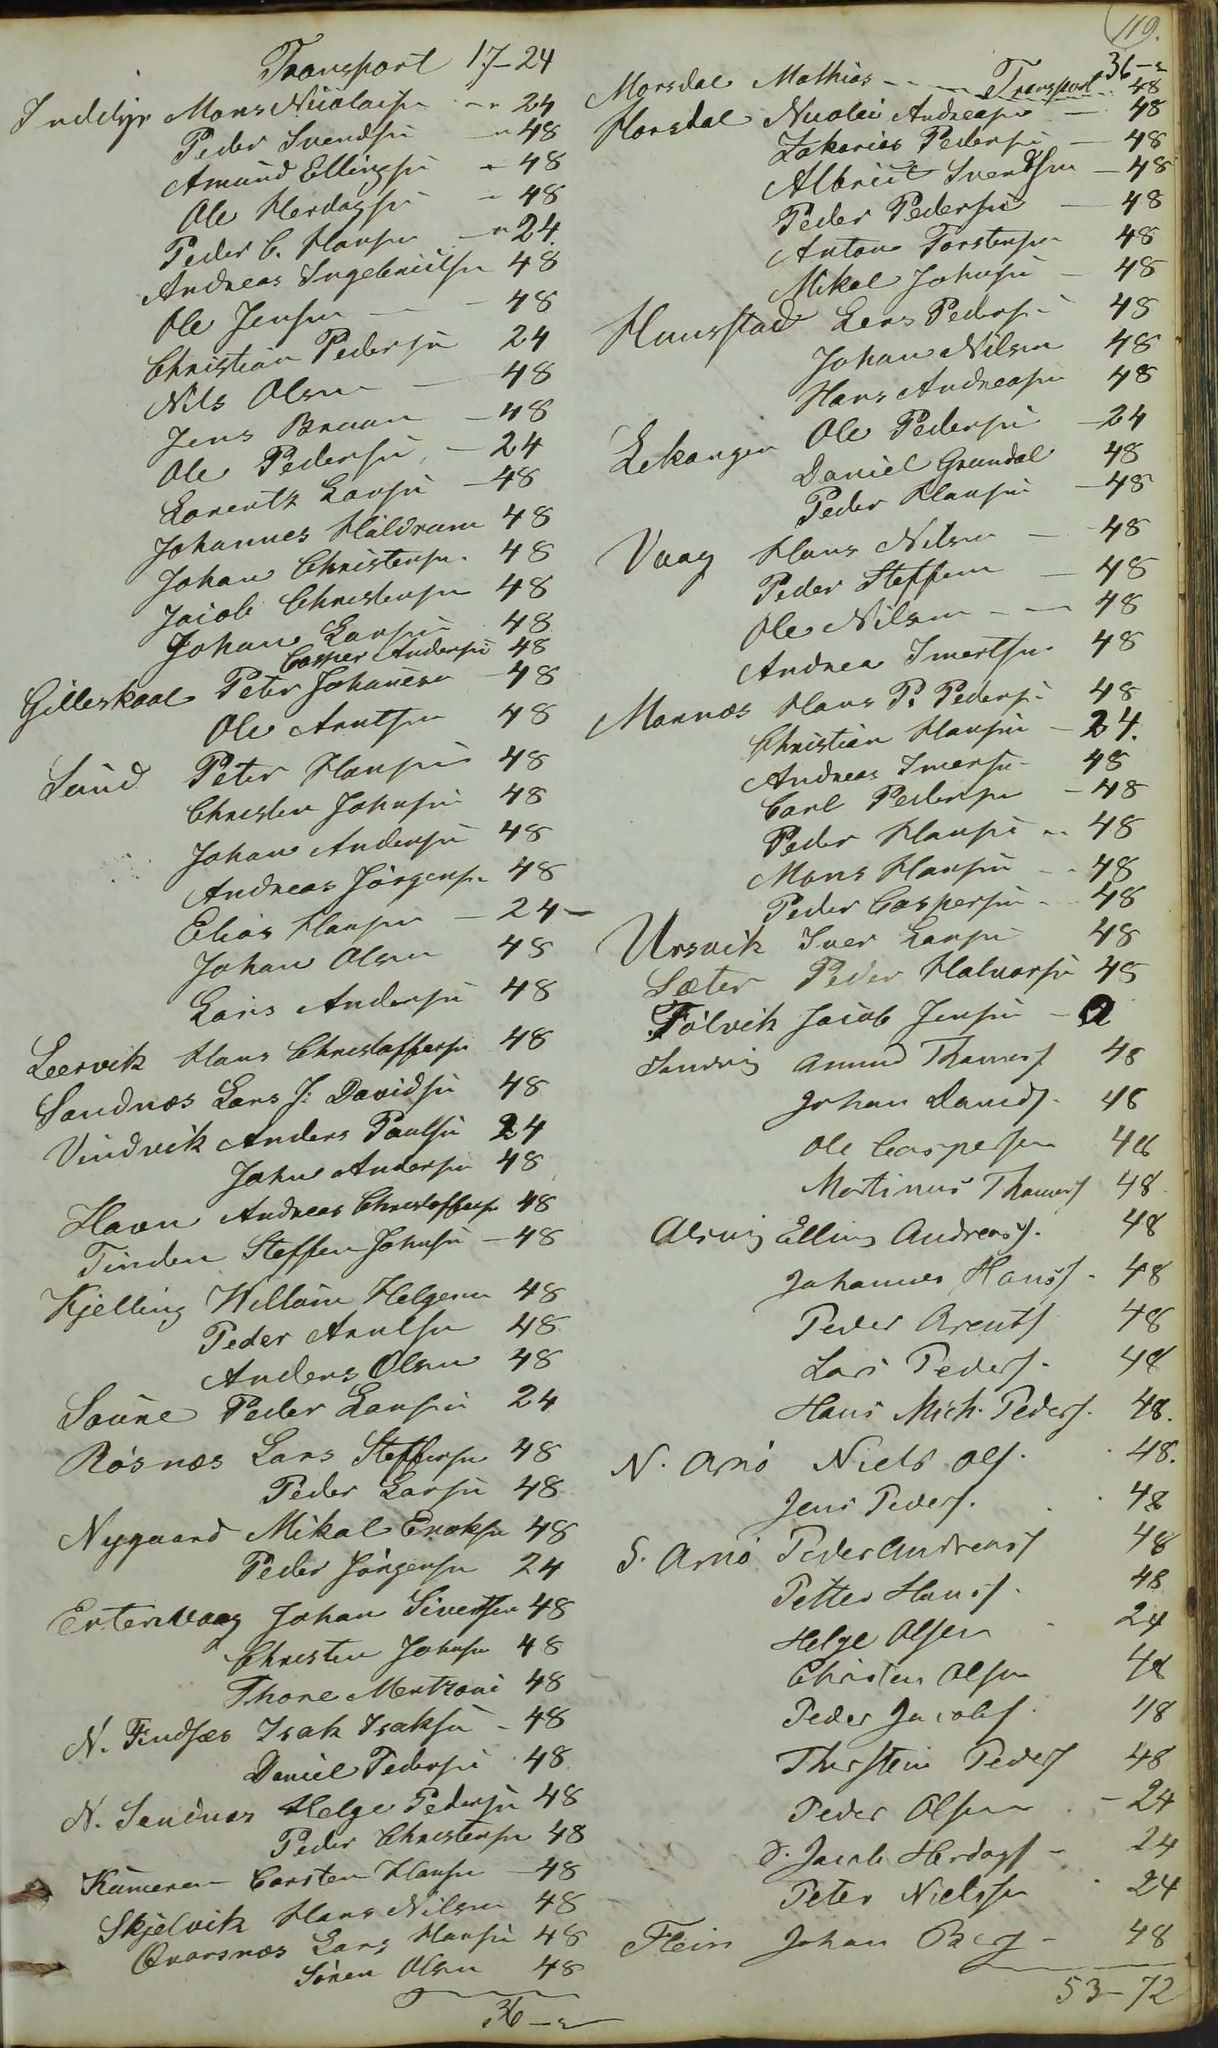 119.
Transport 17-24
Inddyr Mons Nicolaisen 24
Peder Svendsen 48
Amund Ellingsen 48
Ole Herdagsen 48
Peder C. Hansen 24.
Andreas Ingebrictsen 48
Ole Jensen 48
Christian Pedersen 24
Nils Olsen 48
Jens Bruun 48
Ole Pedersen 24
Lorentz Larsen 48
Johannes Hildrum 48
Johan Christensen 48
Jacob Christensen 48
Johan Larsen 48
Casper Andersen 48
Gilleskaal Peter Johansen 48
Ole Arntsen 48
Sund Peter Hansen 48
Christen Johnsen 48
Johan Andersen 48
Andreas Jörgensen 48
Elias Hansen 24
Johan Olsen 48
Lars Andersen 48
Leervik Hans Christoffersen 48
Sandnæs Lars J. Davidsen 48
Vindvik Anders Paulsen 24
John Andersen 48
Havn Andreas Christoffersen 48
Tinden Steffen Johnsen 48
Kjelling Willum Helgesen 48
Peder Arntsen 48
Anders Olsen 48
Saune Peder Larsen 24
Rösnæs Lars Steffensen 48
Peder Larsen 48
Nygaard Mikal Enoksen 48
Peder Jörgensen 24
Ertenvaag Johan Sivertsen 48
Christen Johnsen 48
Thore Mentzoni 48
N. Findsæs Isak Isaksen 48
Daniel Pedersen 48
N. Sandnæs Helge Pedersen 48
Peder Christensen 48
Kameren Carsten Hansen 48
Skjelvik Hans Nilsen 48
Qvarsnæs Lars Hansen 48
Sören Olsen 48
36-"
Transport 36-"
Morsdal Mathias 48
Horsdal Nicolai Andreasen 48
Zakarias Pedersen 48
Albrict Svendsen 48
Peder Pedersen 48
Anton Torstensen 48
Mikal Johnsen 48
Hunstad Lars Pedersen 48
Johan Nilsen 48
Hans Andreasen 48
Lekangen Ole Pedersen 24
Daniel Grundal 48
Peder Hansen 48
Vaag Hans Nilsen 48
Peder Steffens 48
Ole Nilsen 48
Andrea Ivertsen 48
Marnæs Hans P. Pedersen 48
Christian Hansen 24.
Andreas Iversen 48
Carl Pedersen 48
Peder Hansen 48
Mons Hansen 48
Peder Caspersen 48
Ursvik Iver Larsen 48
Sæter Peder Halvorsen 48
Tölvik Jacob Jensen
Sandvig Amund Thomess. 48
Johan Davids. 48
Ole Caspersen 48
Martinus Thomess 48
Alsvig Elling Andreass. 48
Johannes Hanss. 48
Peder Arents 48
Lars Peders. 48
Hans Mich. Peders. 48.
N. Arnö Niels Ols. 48.
Jens Peders. 48
S. Arnö Peder Andreass 48
Petter Hanss. 48
Helge Olsen 24
Christen Olsen 48
Peder Jacobs. 48
Thorstein Peders 48
Peder Olsen 24
Jacob Herdags 24
Peter Nielssen 24
Flein Johan Berg 48
53-72